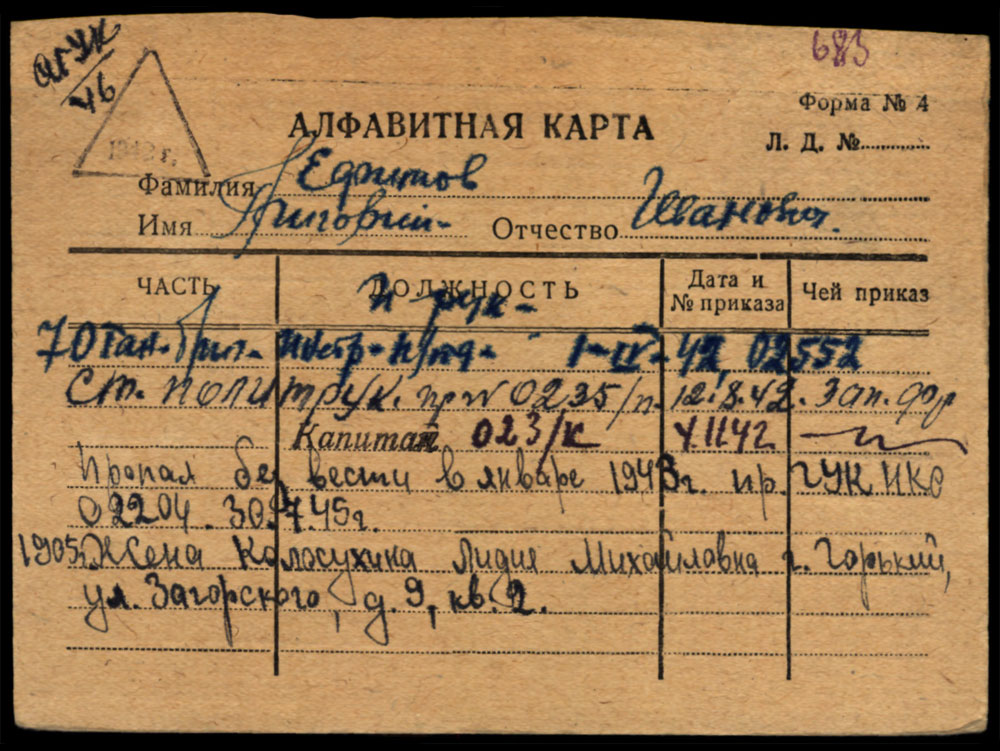 683
/46
Форма № 4
АЛФАВИТНАЯ КАРТА
Л. Д. №
1943 г.
Фамилия Ефимов
Имя Григорий Отчество Иванович
ЧАСТЬ ДОЛЖНОСТЬ Дата и № приказа Чей приказ
п-рук-
70 тан-бриг- 1-IV-42, 02552
Ст. политрук. пр № 0235/п. 12.8.42. Зап. фр
Капитан 023/к
Пропал без вести в январе 1943 г. пр. ГУК НКО
02204. 30.7.45г.
1905г. Жена Колосухина Лидия Михайловна г. Горький,
ул. Загорского, д. 9, кв. 2.